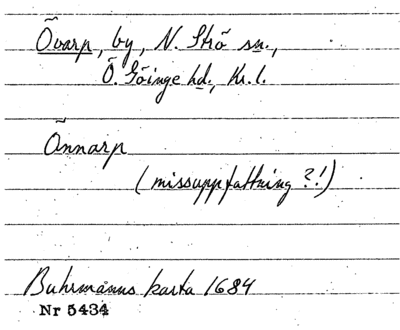 Övarp, by, N. Strö sn.,
Ö. Göinge hd., Kr. l.
Önnarp
(missuppfattning ?!)
Buhrmanns karta 1684
Nr 5434